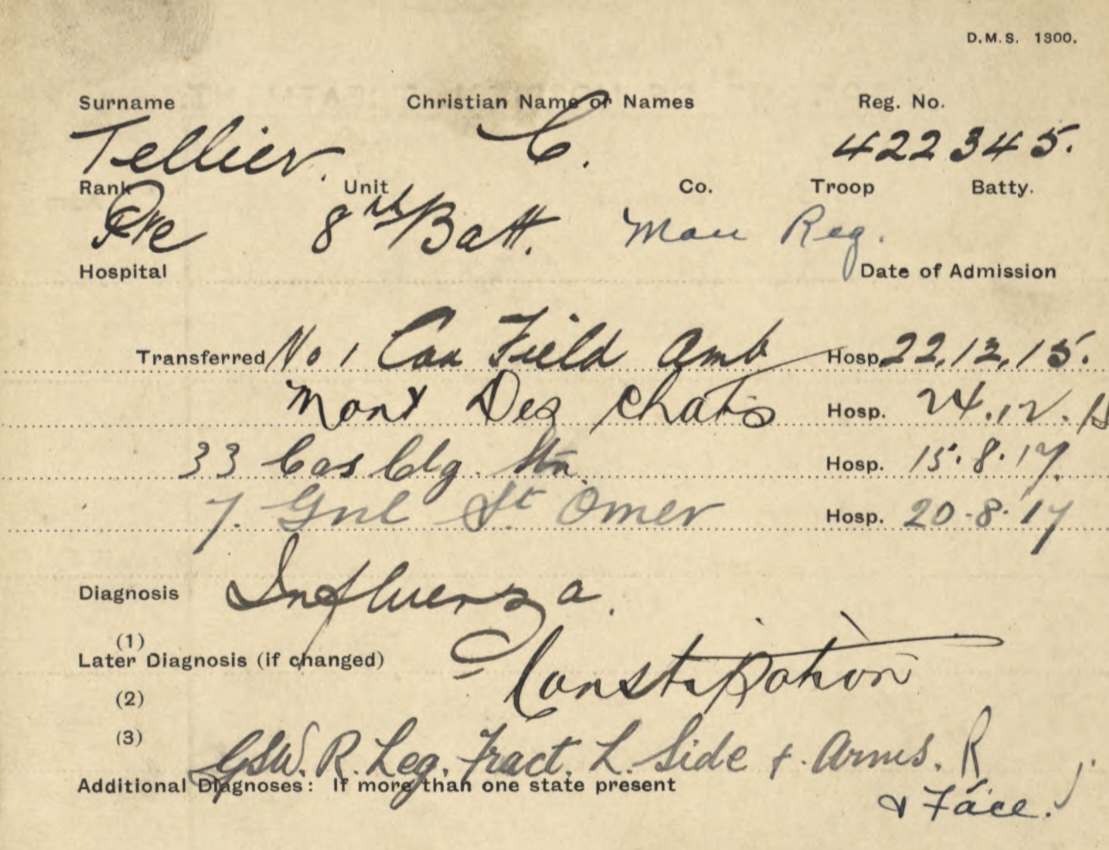 D.M.S. 1300.
Surname Christian Name or Names Reg. No.
Tellier. C. 422345.
Rank Unit Co. Troop Batty.
Pte 8th Batt. Man Reg.
Hospital Date of Admission
Transferred No 1 Can Field Amb Hosp. 22.12.15.
Mont Des Chats Hosp. 24.12.15
33 Cas Clg. Stn. Hosp. 15.8.17.
7. Gnl St Omer Hosp. 20-8-17
Diagnosis Influenza.
(1)
Later Diagnosis (if changed)
Constipation
(2)
(3)
GSW. R. Leg. Fract. L. Side + Arms. R
Additional Diagnoses: If more than one state present
& Face.